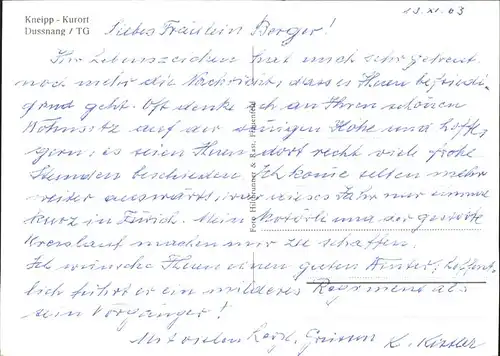 Kneipp - Kurort
Dussnang / TG
13. XI. 63
Liebes Fräulein Berger!
Ihr Lebenszeichen hat mich sehr gefreut,
noch mehr die Nachricht, dass es Ihnen befriedi-
gend geht. Oft denke ich an Ihren schönen
Wohnsitz auf der sonnigen Höhe und hoffe
gern, es seien Ihnen dort recht viele frohe
Stunden beschieden. Ich komme selten mehr
weiter auswärts, war dieses Jahr nur einmal
kurz in Zürich. Mein und der gestörte
Kreislauf machen mir zu schaffen.
Ich wünsche Ihnen einen guten Winter, hoffent-
lich führt er ein milderes Regiment als
sein Vorgänger!
Mit vielen herzl. Grüssen
Foto Hiltbrunner & Rast, Frauenfeld